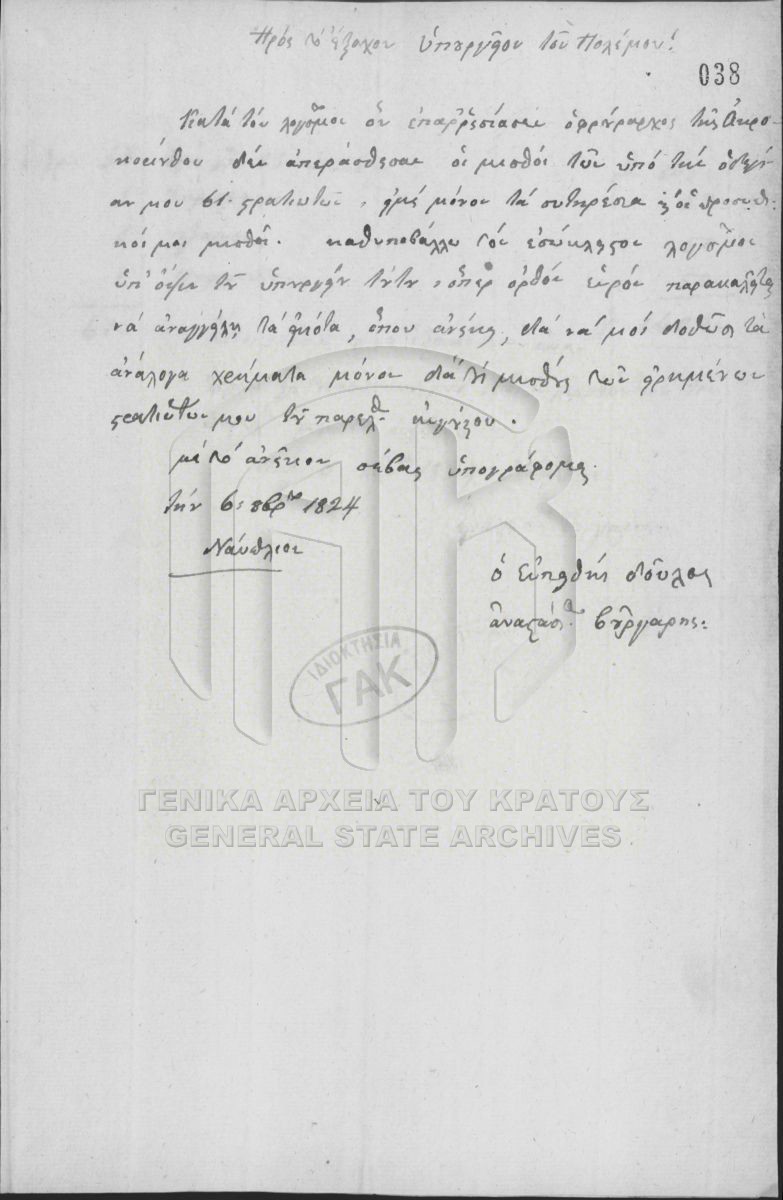 Πρὸς τὸ ἔξοχον ὑπουργεῖον τοῦ Πολέμου!
038
Κατὰ τὸν λογ/σμὸν ὁ φρούραρχος τῆς Ἀκρο-
κορίνθου δὲν ἀπεράσθησαν οἱ μισθοὶ τῶν ὑπὸ τὴν ὁδηγί-
αν μου 61 στρατιωτῶν, εἰμὴ μόνον τὰ σιτηρέσια
κοί μου μισθοί. καθυποβάλλω τὸν ἐσώκλειστον λογ/σμὸν
ὑπ' ὄψιν τοῦ ὑπουργείου τούτου, ὅπερ ὀρθὸν παρακαλεῖται
νὰ ὅπου ἀνήκει, διὰ νὰ μοὶ δοθῶσι τὰ
ἀνάλογα χρήματα μόνον διὰ τοὺς μισθοὺς τῶν εἰρημένων
στρατιωτῶν μου τοῦ παρελθ. αὐγούστου.
μὲ τὸ ἀνῆκον σέβας ὑπογράφομαι.
τὴν 6: 8βρίου 1824
Ναύπλιον
ὁ εὐπειθὴς δοῦλος
ἀναστάσ. βούργαρης:
ΙΔΙΟΚΤΗΣΙΑ
ΓΑΚ
ΓΕΝΙΚΑ ΑΡΧΕΙΑ ΤΟΥ ΚΡΑΤΟΥΣ
GENERAL STATE ARCHIVES